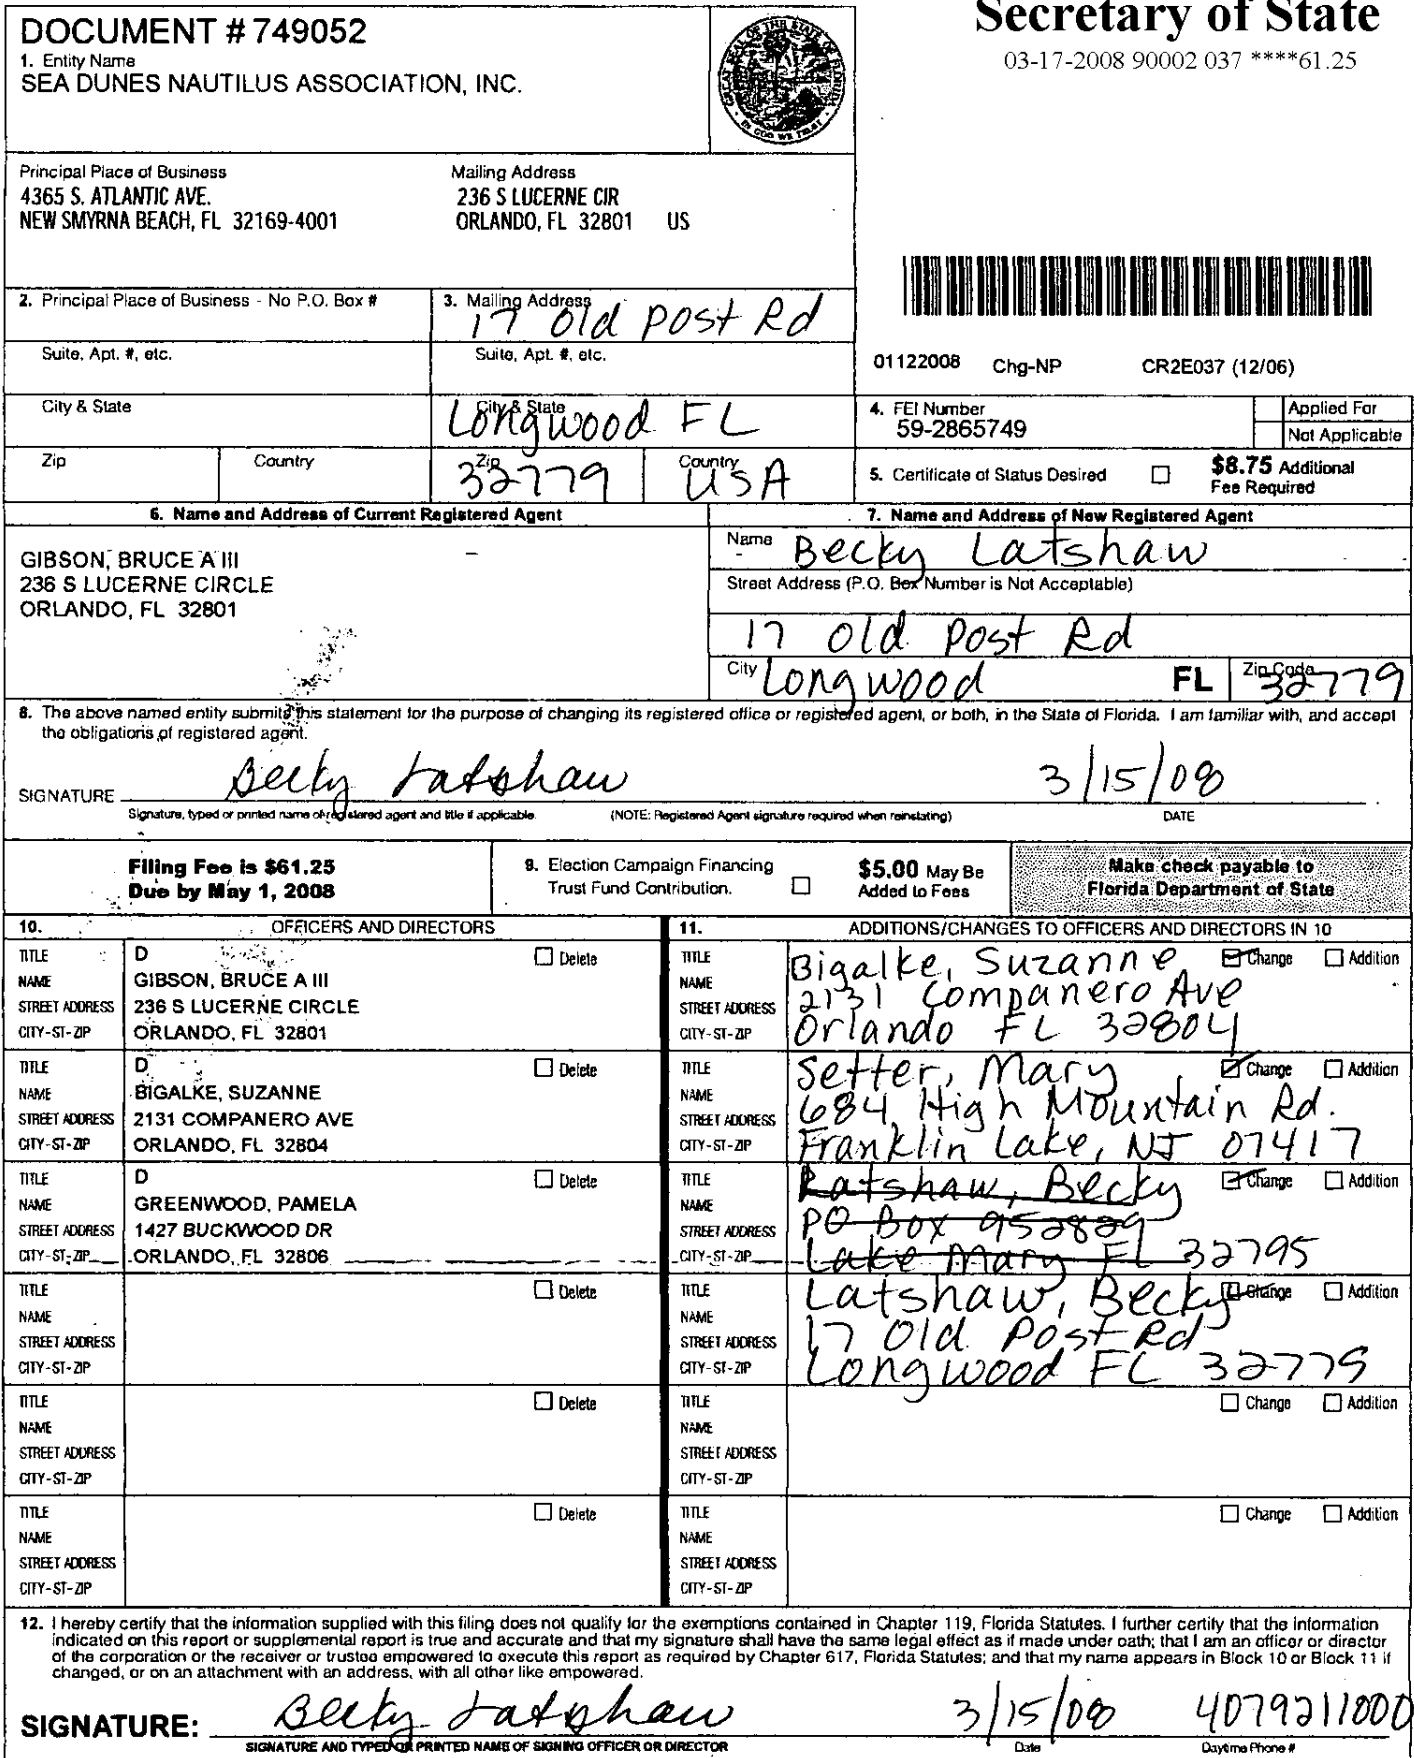 Secretary of State
03-17-2008 90002 037 ****61.25
DOCUMENT # 749052
1. Entity Name
SEA DUNES NAUTILUS ASSOCIATION, INC.
GREAT SEAL OF THE STATE OF FLORIDA
IN GOD WE TRUST
Principal Place of Business
4365 S. ATLANTIC AVE.
NEW SMYRNA BEACH, FL 32169-4001
Mailing Address
236 S LUCERNE CIR
ORLANDO, FL 32801 US
2. Principal Place of Business - No P.O. Box #
3. Mailing Address
17 Old Post Rd
Suite, Apt. #, etc.
Suite, Apt. #, etc.
01122008 Chg-NP CR2E037 (12/06)
City & State
City & State
Longwood FL
4. FEI Number
59-2865749
Applied For
Not Applicable
Zip
Country
Zip
32779
Country
USA
5. Certificate of Status Desired
$8.75 Additional
Fee Required
6. Name and Address of Current Registered Agent
GIBSON, BRUCE A III
236 S LUCERNE CIRCLE
ORLANDO, FL 32801
7. Name and Address of New Registered Agent
Name
Becky Latshaw
Street Address (P.O. Box Number is Not Acceptable)
17 Old Post Rd
City Longwood FL Zip Code 32779
8. The above named entity submits this statement for the purpose of changing its registered office or registered agent, or both, in the State of Florida. I am familiar with, and accept
the obligations of registered agent.
SIGNATURE Becky Latshaw 3/15/08
Signature, typed or printed name of registered agent and title if applicable. (NOTE: Registered Agent signature required when reinstating) DATE
Filing Fee is $61.25
Due by May 1, 2008
9. Election Campaign Financing
Trust Fund Contribution.
$5.00 May Be
Added to Fees
Make check payable to
Florida Department of State
10. OFFICERS AND DIRECTORS
TITLE D Delete
NAME GIBSON, BRUCE A III
STREET ADDRESS 236 S LUCERNE CIRCLE
CITY-ST-ZIP ORLANDO, FL 32801
TITLE D Delete
NAME BIGALKE, SUZANNE
STREET ADDRESS 2131 COMPANERO AVE
CITY-ST-ZIP ORLANDO, FL 32804
TITLE D Delete
NAME GREENWOOD, PAMELA
STREET ADDRESS 1427 BUCKWOOD DR
CITY-ST-ZIP ORLANDO, FL 32806
TITLE Delete
NAME
STREET ADDRESS
CITY-ST-ZIP
TITLE Delete
NAME
STREET ADDRESS
CITY-ST-ZIP
TITLE Delete
NAME
STREET ADDRESS
CITY-ST-ZIP
11. ADDITIONS/CHANGES TO OFFICERS AND DIRECTORS IN 10
TITLE Change Addition
NAME Bigalke, Suzanne
STREET ADDRESS 2131 Companero Ave
CITY-ST-ZIP Orlando FL 32804
TITLE Change Addition
NAME Setter, Mary
STREET ADDRESS 684 High Mountain Rd.
CITY-ST-ZIP Franklin Lake, NJ 07417
TITLE Change Addition
NAME Latshaw, Becky
STREET ADDRESS PO Box 952829
CITY-ST-ZIP Lake Mary FL 32795
TITLE Change Addition
NAME Latshaw, Becky
STREET ADDRESS 17 Old Post Rd
CITY-ST-ZIP Longwood FL 32779
TITLE Change Addition
NAME
STREET ADDRESS
CITY-ST-ZIP
TITLE Change Addition
NAME
STREET ADDRESS
CITY-ST-ZIP
12. I hereby certify that the information supplied with this filing does not qualify for the exemptions contained in Chapter 119, Florida Statutes. I further certify that the information
indicated on this report or supplemental report is true and accurate and that my signature shall have the same legal effect as if made under oath; that I am an officer or director
of the corporation or the receiver or trustee empowered to execute this report as required by Chapter 617, Florida Statutes; and that my name appears in Block 10 or Block 11 if
changed, or on an attachment with an address, with all other like empowered.
SIGNATURE: Becky Latshaw 3/15/08 4079211000
SIGNATURE AND TYPED OR PRINTED NAME OF SIGNING OFFICER OR DIRECTOR Date Daytime Phone #